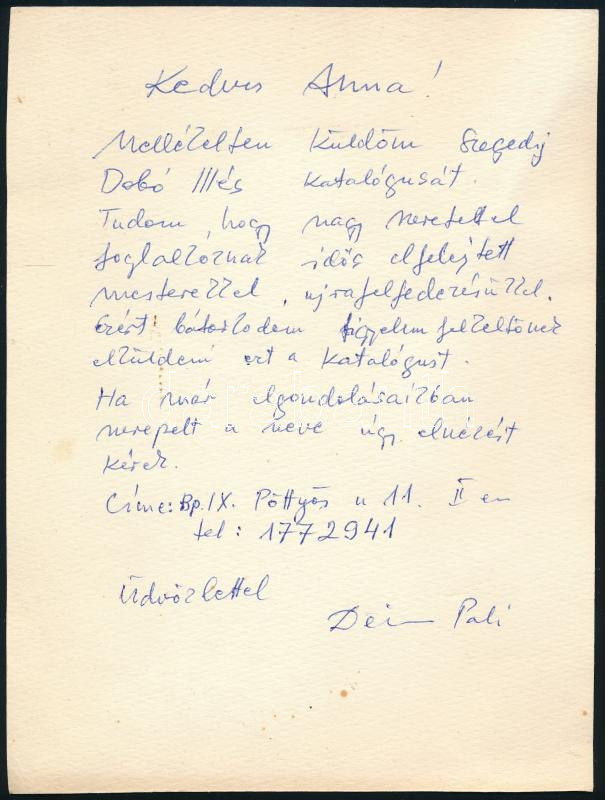 Kedves Anna!
Mellékelten küldöm Szegedy
Dobó Illés katalógusát.
Tudom, hogy nagy szeretettel
foglalkoznak idős elfelejtett
mesterekkel, ujrafelfedezésükkel.
Ezért bátorkodom figyelem felkeltőnek
elküldeni ezt a katalógust.
Ha már elgondolásaikban
szerepelt a neve úgy elnézést
kérek.
Címe: Bp. IX. Pöttyös u 11. II em
tel: 1772941
Üdvözlettel
Deim Pali